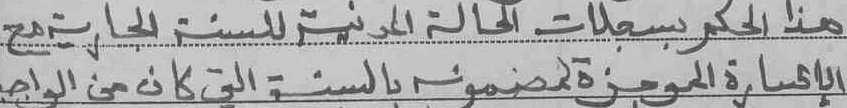 هذا الحكم بسجلات الحالة المدنية للسنة الجارية مع
الإشارة الموجزة لمضمونه بالسنة التي كان من الواجب